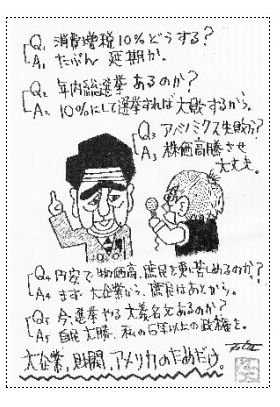 Q1 消費増税10%どうする?
A1 たぶん 延期か。
Q2 年内総選挙あるのか?
A2 10%にして選挙すれば大敗するから。
Q3 アベノミクス失敗か?
A3 株価高騰させ
大丈夫。
Q4 円安で物価高、庶民を更に苦しめるのか?
A4 まず大企業から、庶民はあとから。
Q5 今、選挙やる大義名分あるのか?
A5 自民大勝、私の6年以上の政権を。
大企業、財閥、アメリカのためだけ。